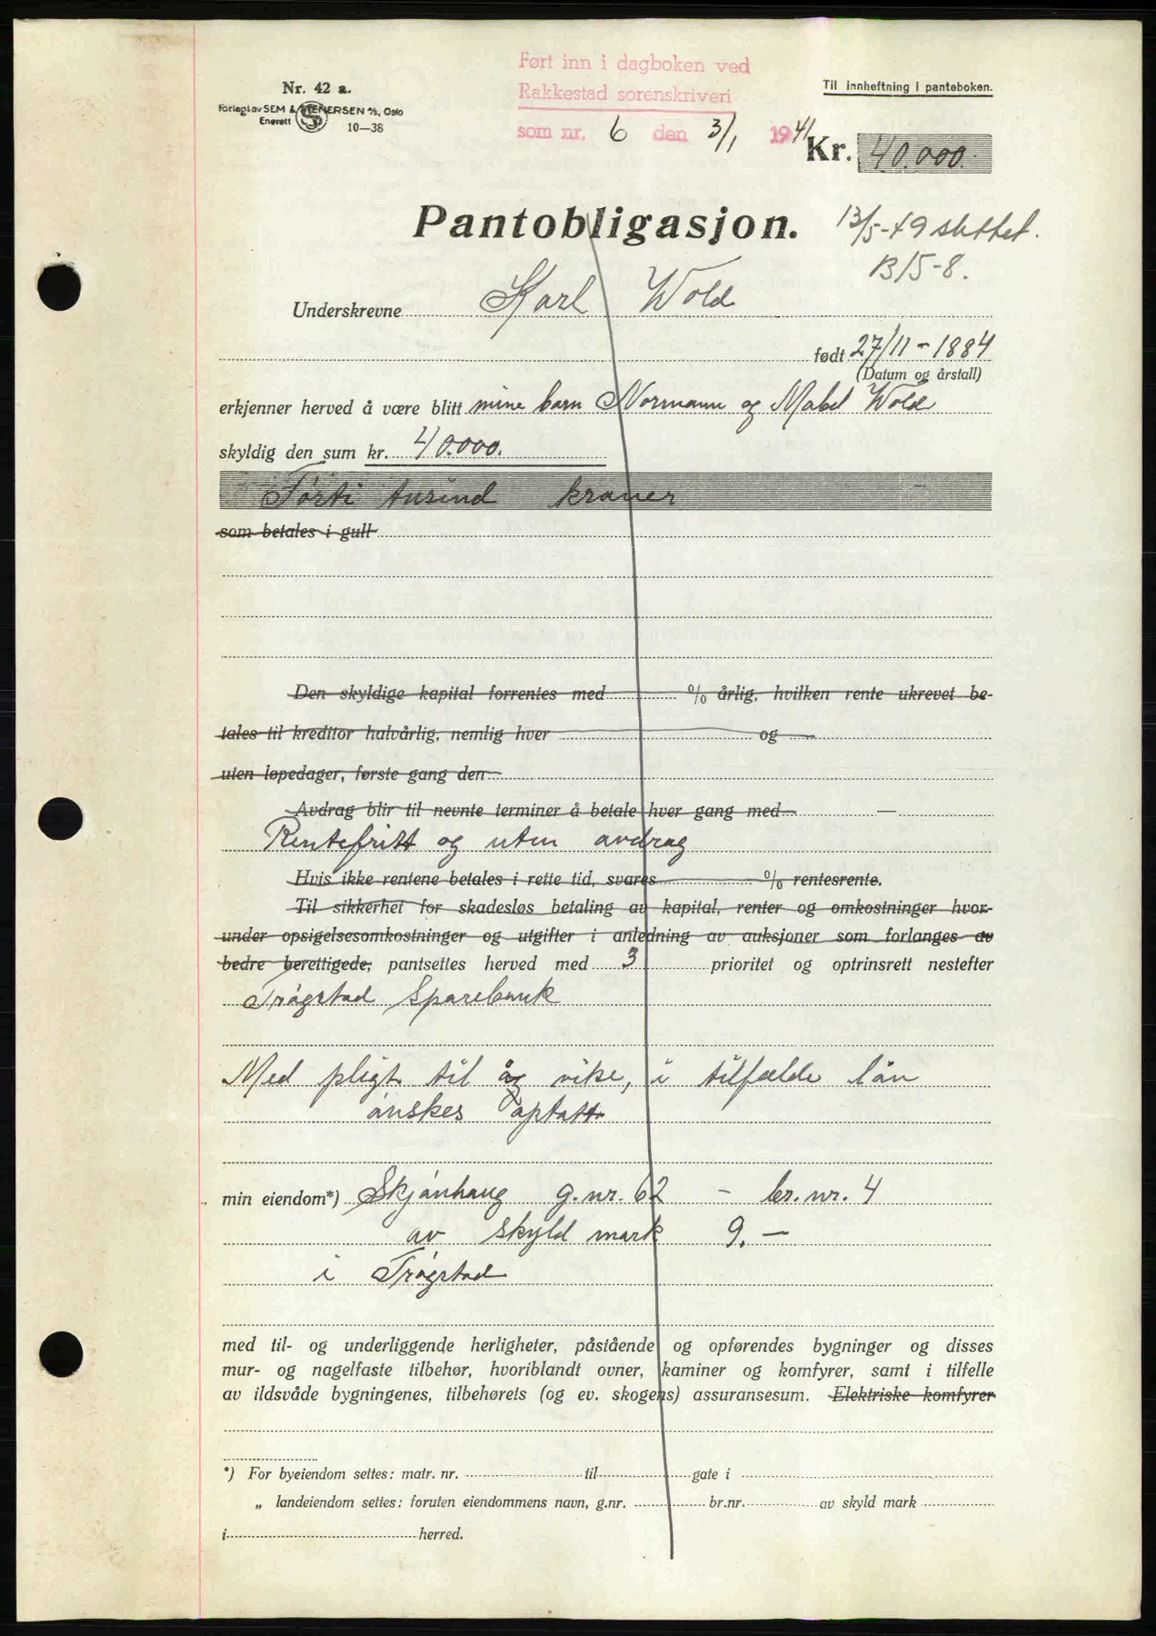 Ført inn i dagboken ved
Rakkestad sorenskriveri
som nr. 6 den 3/1 1941
Nr. 42 a.
Forlagt av SEM & STENERSEN A/S, Oslo
Enerett 10—38
Til innheftning i panteboken.
Kr. 40.000.
Pantobligasjon.
13/5-49 slettet.
B15-8.
Underskrevne Karl Wold
født 27/11-1884
(Datum og årstall)
erkjenner herved å være blitt mine barn Normann og Mabel Wold
skyldig den sum kr. 40.000.
Førti tusind kroner
som betales i gull
Den skyldige kapital forrentes med % årlig, hvilken rente ukrevet be-
tales til kreditor halvårlig, nemlig hver og
uten løpedager, første gang den
Avdrag blir til nevnte terminer å betale hver gang med —
Rentefritt og uten avdrag
Hvis ikke rentene betales i rette tid, svares % rentesrente.
Til sikkerhet for skadesløs betaling av kapital, renter og omkostninger hvor-
under opsigelsesomkostninger og utgifter i anledning av auksjoner som forlanges av
bedre berettigede, pantsettes herved med 3 prioritet og optrinsrett nestefter
Trøgstad Sparebank
Med pligt til å vike, i tilfælde lån
ønskes optatt
min eiendom*) Skjønhaug g.nr. 62 - br.nr. 4
av skyld mark 9.—
i Trøgstad
med til- og underliggende herligheter, påstående og opførendes bygninger og disses
mur- og nagelfaste tilbehør, hvoriblandt ovner, kaminer og komfyrer, samt i tilfelle
av ildsvåde bygningenes, tilbehørets (og ev. skogens) assuransesum. Elektriske komfyrer
*) For byeiendom settes: matr. nr. til gate i
„ landeiendom settes: foruten eiendommens navn, g.nr. br.nr. av skyld mark
i herred.